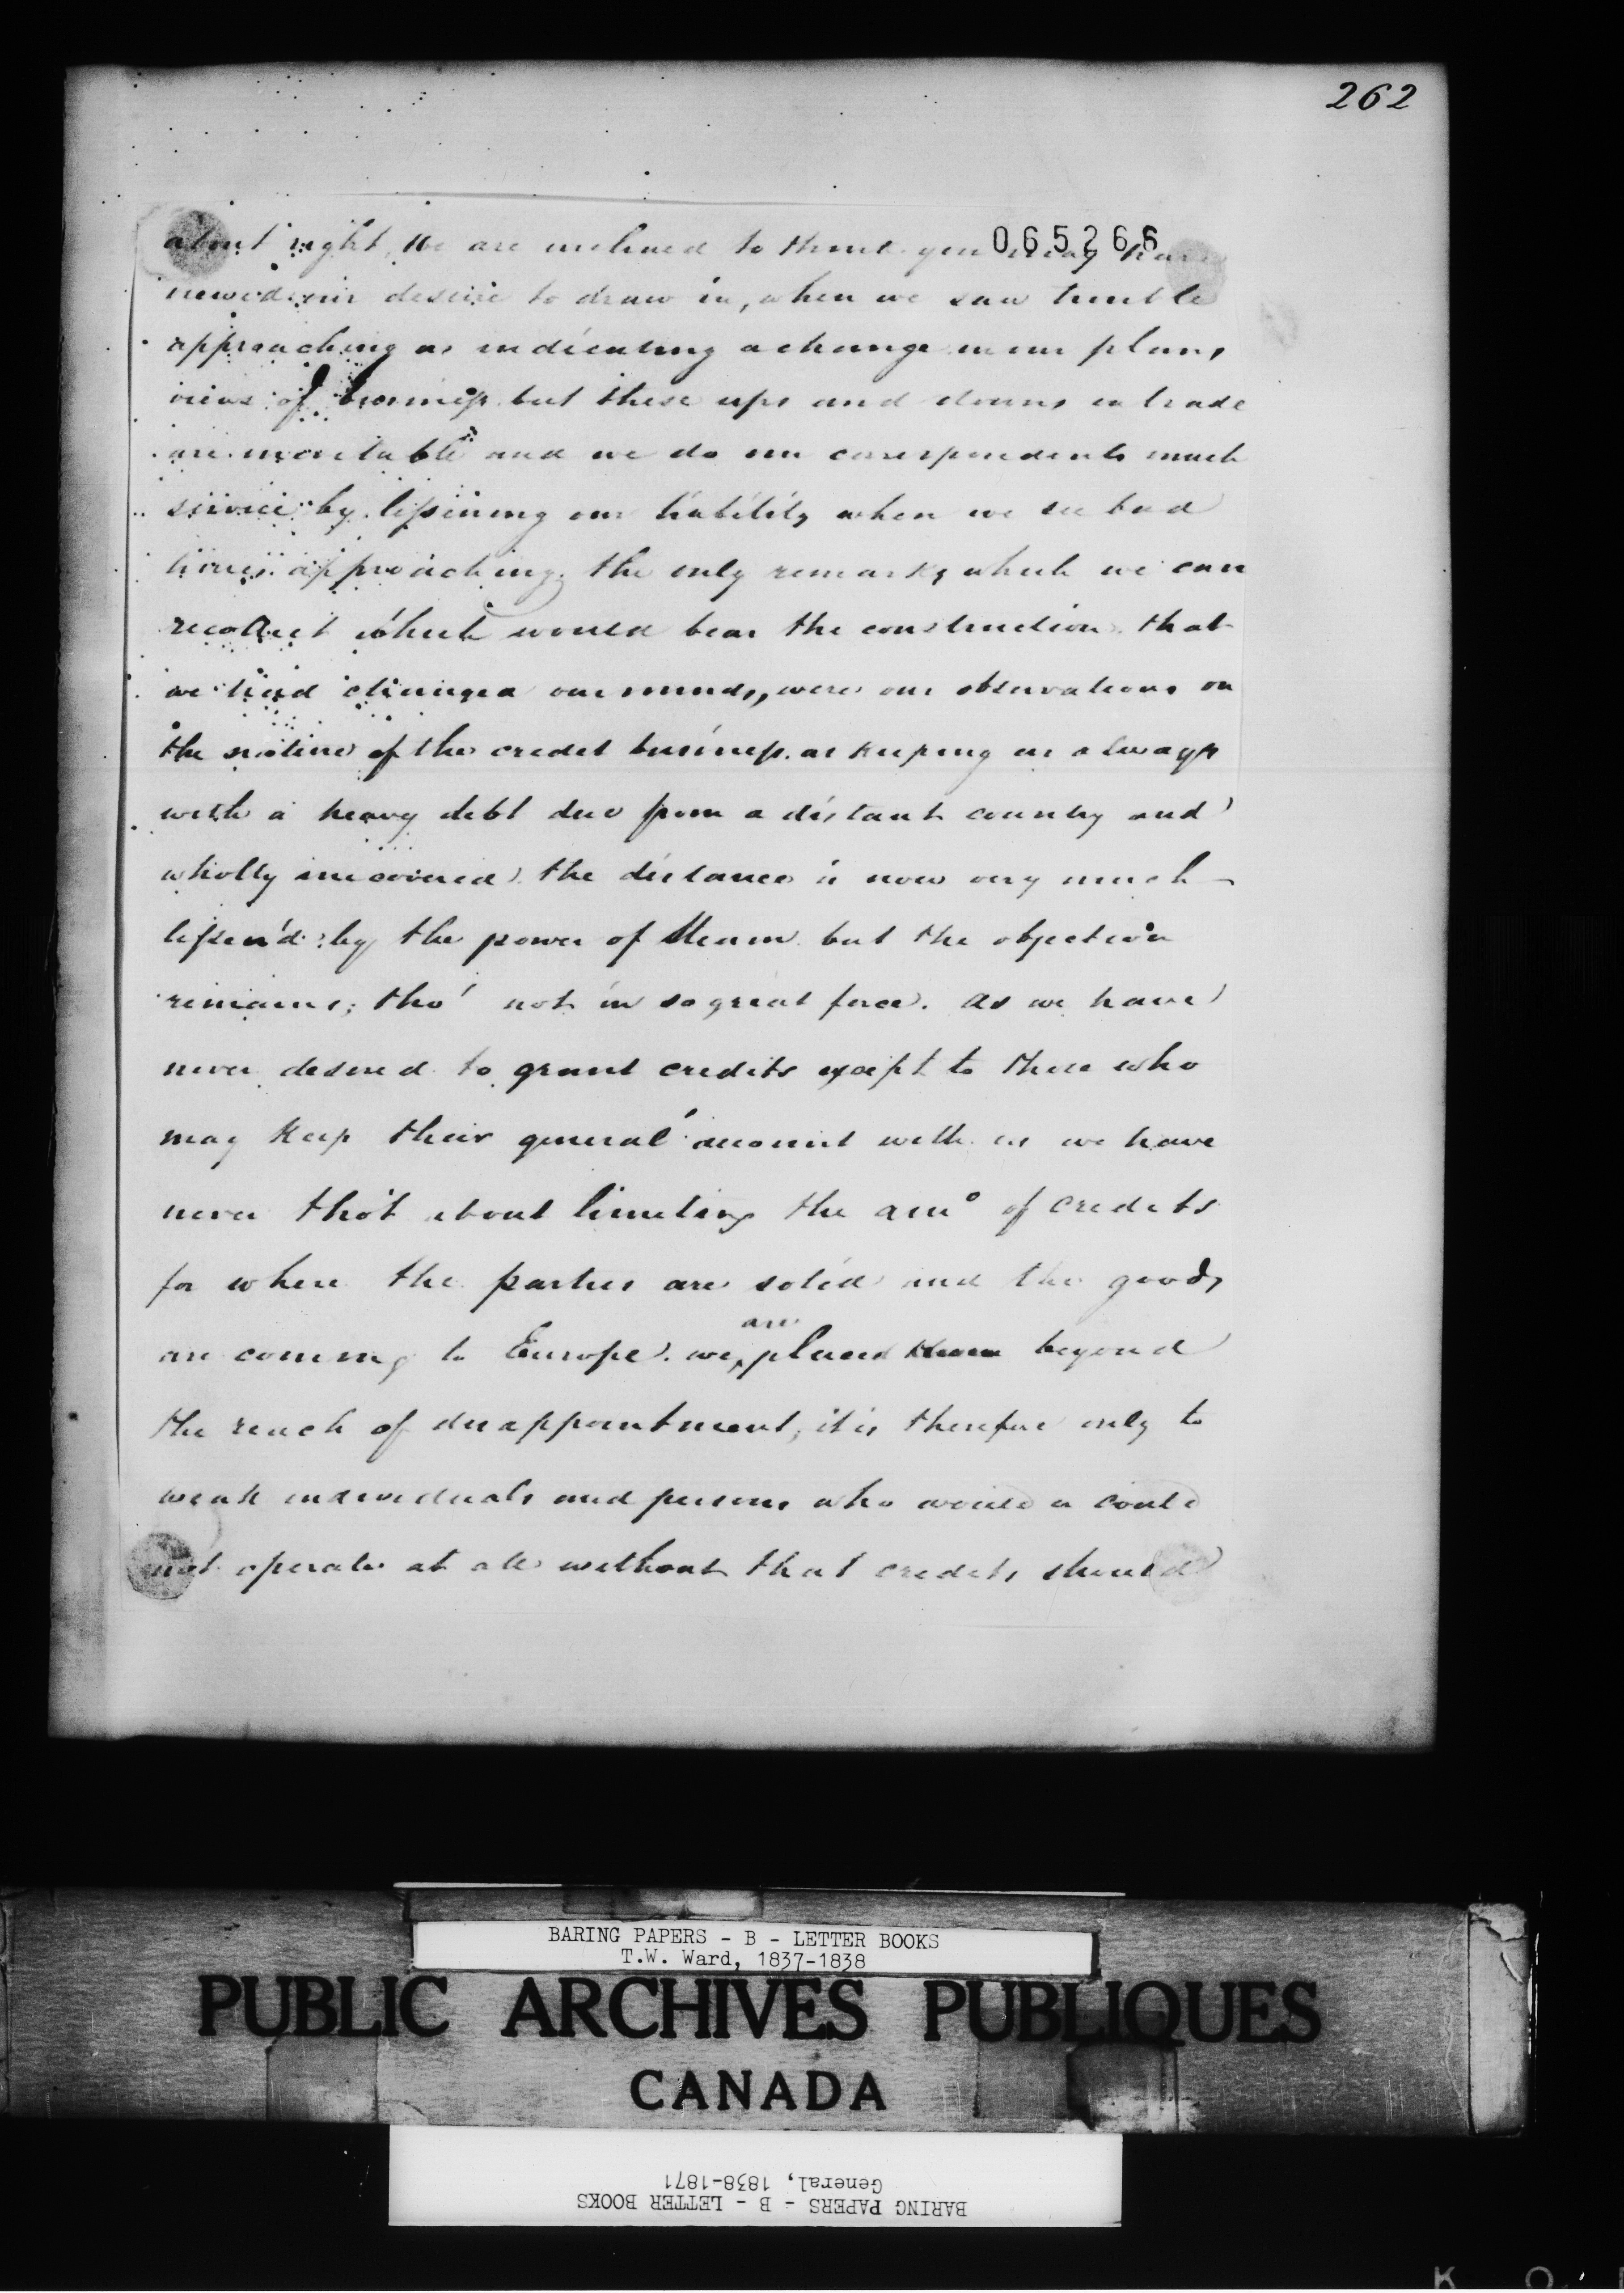 262
065266
about right, We are inclined to think you may have
viewed our desire to draw in, when we saw trouble
approaching as indicating a change in our plans,
views of business but these ups and downs in trade
are inevitable and we do our correspondents much
service by lessening our liability when we see bad
times approaching; the only remarks, which we can
recollect which would bear the construction that
we had changed our minds, were our observations on
the nature of the credit business as keeping us always
with a heavy debt due from a distant country and
wholly uncovered. the distance is now very much
lessen'd by the power of Steam but the objection
remains; tho' not in so great force. As we have
never desired to grant credits except to those who
may keep their general account with us we have
never tho't about limiting the amo of credits
for where the parties are solid and the goods
are coming to Europe. we are placed beyond
the reach of disappointment, it is therefore only to
weak individuals and persons who would or could
not operate at all without that credits should
BARING PAPERS - B - LETTER BOOKS
T.W. Ward, 1837-1838
PUBLIC ARCHIVES PUBLIQUES
CANADA
BARING PAPERS - B - LETTER BOOKS
General, 1838-1871